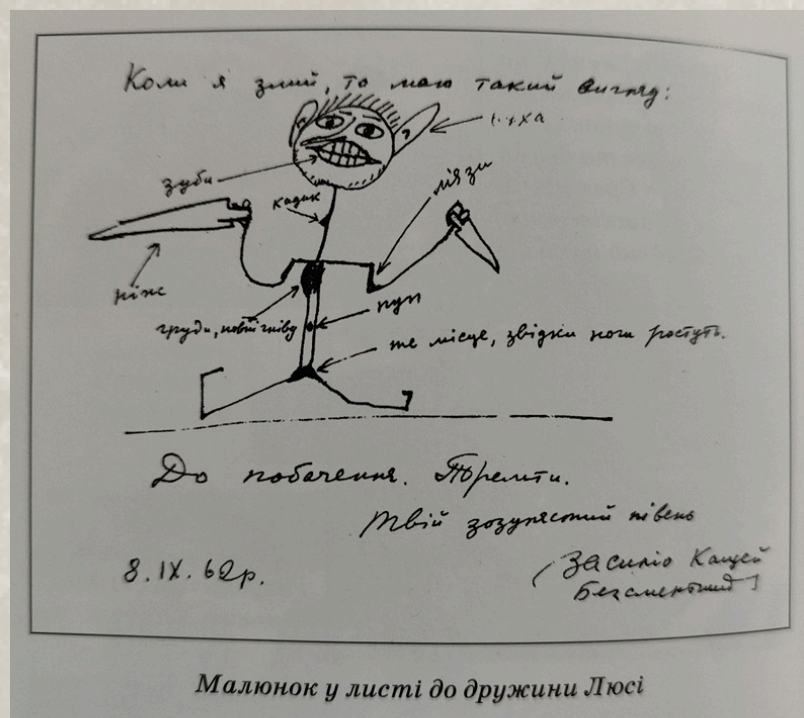 Коли я злий, то маю такий вигляд:
вуха
зуби
кадик
м'язи
ніж
груди, повні гніву
пуп
те місце, звідки ноги ростуть.
До побачення. Тремти.
Твій зозулястий півень
8.IX.62р.
(Василіо Кащей
Безсмертний)
Малюнок у листі до дружини Люсі